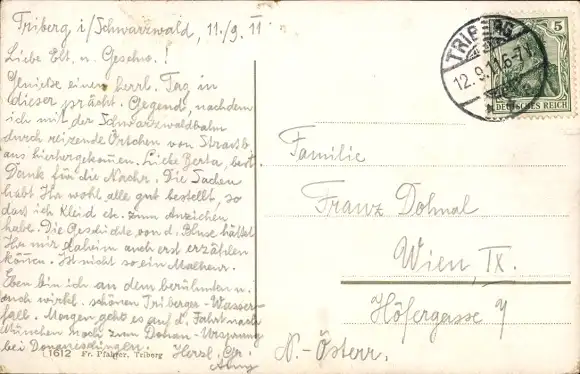 Triberg i/Schwarzwald, 11./9. 11
Liebe Elt. u. Geschw.!
Genieße einen herrl. Tag in
dieser prächt. Gegend, nachdem
ich mit der Schwarzwaldbahn
durch reizende Örtchen von Strassb.
aus hierhergekommen. Liebe Berta, best.
Dank für die Nachr. Die Sachen
habt Ihr wohl alle gut bestellt, so
dass ich Kleid etc. zum Anziehen
habe. Die Geschichte von d. Bluse hättet
Ihr mir daheim auch erst erzählen
können. Ist nicht so ein Malheur.
Eben bin ich an dem berühmten u.
auch wirkl. schönen Triberger-Wasser-
fall. Morgen geht es auf d. Fahrt nach
München noch zum Donau-Ursprung
bei Donaueschingen. Herzl. Gr.
1612 Fr. Pfahrer, Triberg
TRIBERG
12.9.11.6-7
5
DEUTSCHES REICH
Familie
Franz Dohnal
Wien, IX.
Höfergasse
N.-Österr.